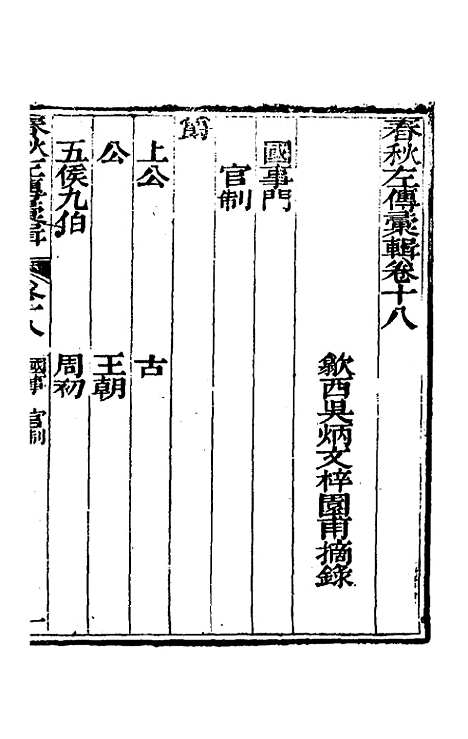 春秋左傳彙輯卷十八
歙西吳炳文梓園甫摘錄
國事門
官制
爵
上公 古
公 王朝
五侯九伯 周初
春秋左傳彙輯 卷十八 國事 官制 一